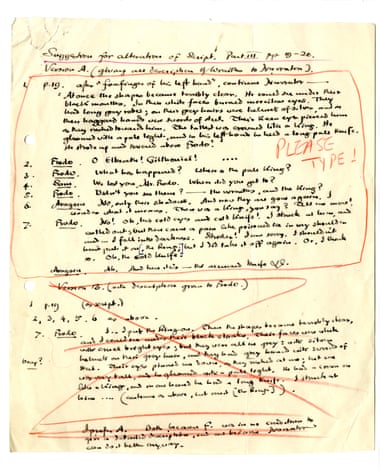 Suggestion for alteration of Script. Part III. pp 19-20.
Version A. (giving all description of Wraiths to Narrator).
1. p.19. after "forefinger of his left hand" continues Narrator
At once the shapes became terribly clear. He could see under their
black mantles. In their white faces burned merciless eyes. They
had long grey robes; on their grey hairs were helmets of silver, and in
their haggard hands were swords of steel. Their keen eyes pierced him
as they rushed towards him. The tallest was crowned like a king. He
gleamed with a pale light, and in his left hand he held a long pale knife.
He strode up and
above Frodo.
PLEASE
TYPE!
2. Frodo. O Elbereth! Gilthoniel! ....
3. Frodo. What has happened? Where is the pale king?
4. Sam. We lost you, Mr. Frodo. Where did you get to?
5. Frodo. Didn't you see them? — the wraiths, and the king?
6. Aragorn. No, only their shadows. And now they are gone again,
There was a king you say? Tell me more!
7. Frodo. No! Oh, his cold eyes and cold knife! I struck at him, and
called out; but there came a pain like poisoned ice in my shoulder
and — I fell into darkness. I am sorry, I shouldn't
have put it on, the Ring; but I did take it off again. Or, I think
so. Oh, the cold knife!
Aragorn. Ah. And here it is — the accursed knife
Version B. (with description given to Frodo).
1 p.19 (as script)
2, 3, 4, 5, 6 as above.
7. Frodo. I .. I put the Ring on. Then the shapes became terribly clear,
and I could see under their black cloaks. Their faces were white
with cruel bright eyes; but they were all in grey, with silver
helmets on their grey hair, and they had grey hands with swords of
steel. Their eyes pierced me
was very tall, and he gleamed with a pale light. He had a crown on
like a king, and in one hand he had a long knife. I struck at
him .... (continue as above, but omit [the Ring;])
I prefer A. Both because F. was in no condition to
give a detailed description, and
Narrator
can do it better anyway.